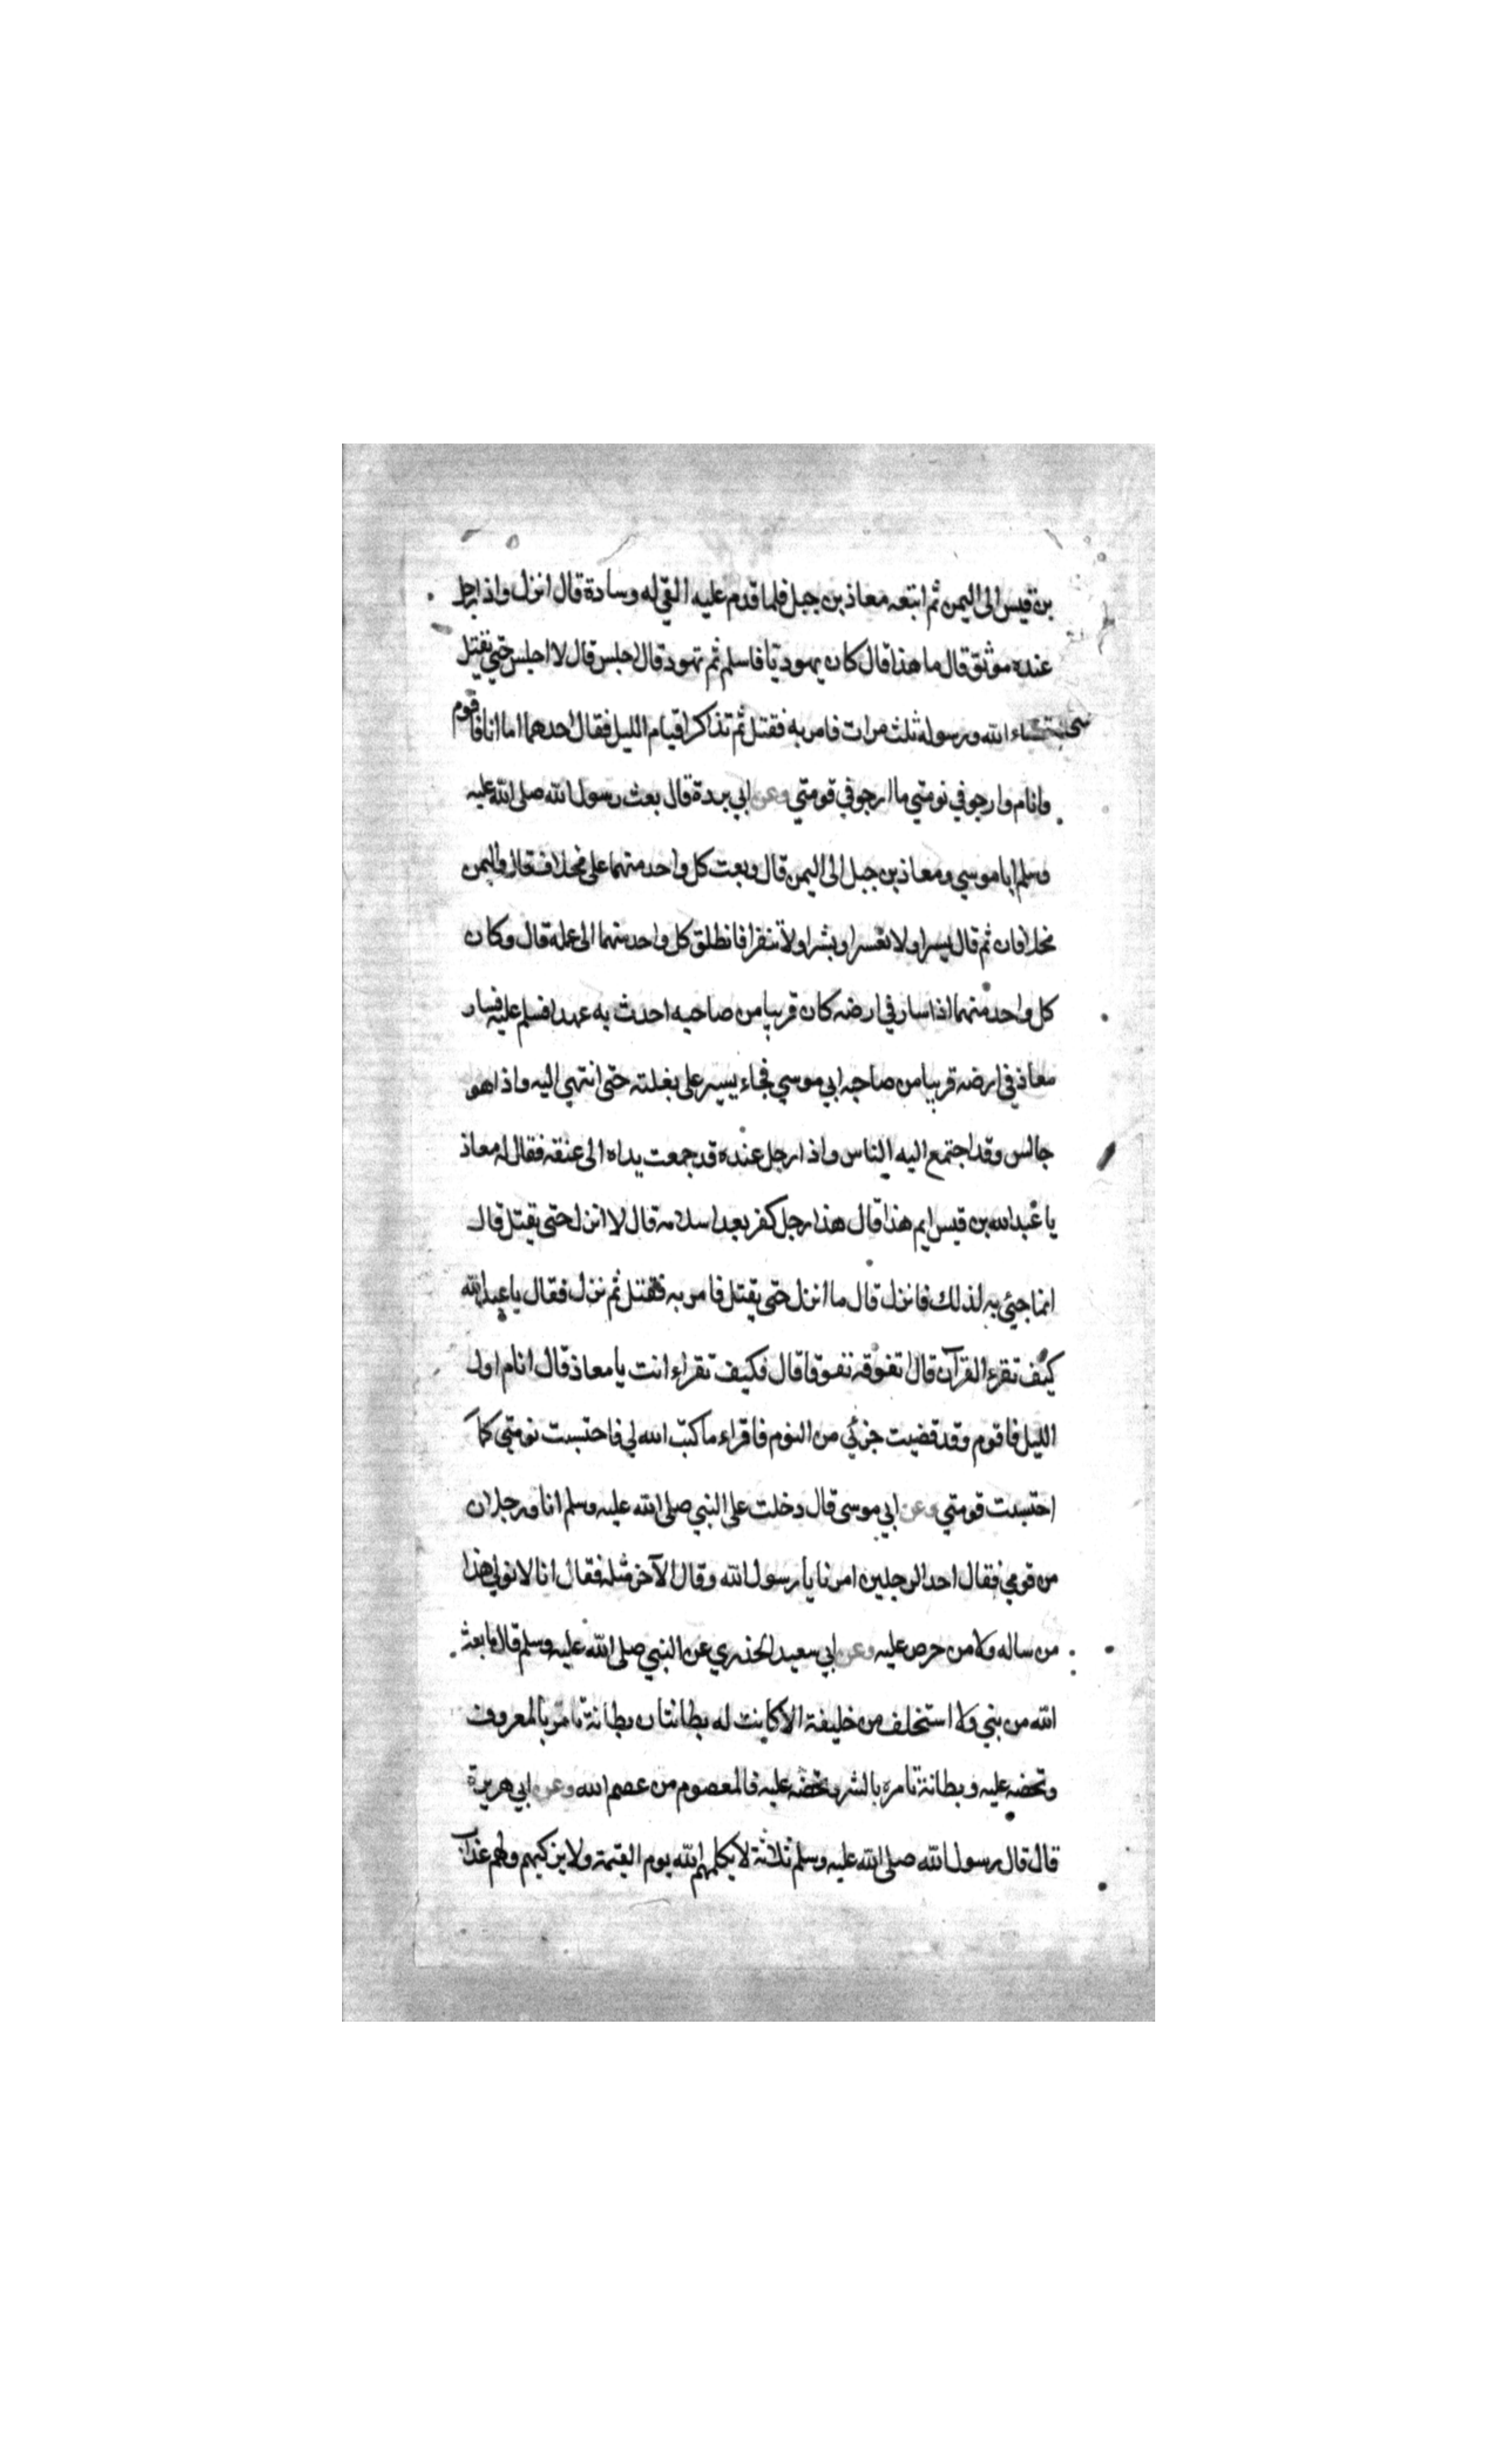 بن قيس الى اليمن ثم اتبعه معاذ بن جبل فلما قدم عليه القي له وسادة قال انزل واذا رجل
عنده موثق قال ما هذا قال كان يهوديا فاسلم ثم تهود قال اجلس قال لا اجلس حتي يقتل
قضاء الله ورسوله ثلث مرات فامر به فقتل ثم تذاكرا قيام الليل فقال احدهما اما انا فاقوم
وانام وارجو في نومتي ما ارجو في قومتي وعن ابي بردة قال بعث رسول الله صلى الله عليه
وسلم ابا موسي ومعاذ بن جبل الى اليمن قال وبعث كل واحد منهما على مخلاف قال واليمن
مخلافان ثم قال يسرا ولا تعسرا وبشرا ولا تنفرا فانطلق كل واحد منهما الى عمله قال وكان
كل واحد منهما اذا سار في ارضه كان قريبا من صاحبه احدث به عهدا فسلم عليه فسار
معاذ في ارضه قريبا من صاحبه ابي موسي فجاء يسير على بغلته حتى انتهي اليه واذا هو
جالس وقد اجتمع اليه الناس واذا رجل عنده قد جمعت يداه الى عنقه فقال له معاذ
يا عبد الله بن قيس ايم هذا قال هذا رجل كفر بعد اسلامه قال لا انزل حتى يقتل قال
انما جيئ به لذلك فانزل قال ما انزل حتى يقتل فامر به فقتل ثم نزل فقال يا عبد الله
كيف تقرء القرآن قال اتفوقه تفوقا قال فكيف تقراء انت يا معاذ قال انام اول
الليل فاقوم وقد قضيت جزئي من النوم فاقراء ما كتب الله لي فاحتسبت نومتي كما
احتسبت قومتي وعن ابي موسى قال دخلت على النبي صلى الله عليه وسلم انا ورجلان
من قومي فقال احد الرجلين امرنا يا رسول الله وقال الآخر مثله فقال انا لا نولي هذا
من ساله ولا من حرص عليه وعن ابي سعيد الخدري عن النبي صلى الله عليه وسلم قال ما بعث
الله من نبي ولا استخلف من خليفة الا كانت له بطانتان بطانة تامر بالمعروف
وتحضه عليه وبطانة تامره بالشر وتحضه عليه فالمعصوم من عصم الله وعن ابي هريرة
قال قال رسول الله صلى الله عليه وسلم ثلاثة لا يكلمهم الله يوم القيمة ولا يزكيهم ولهم عذاب